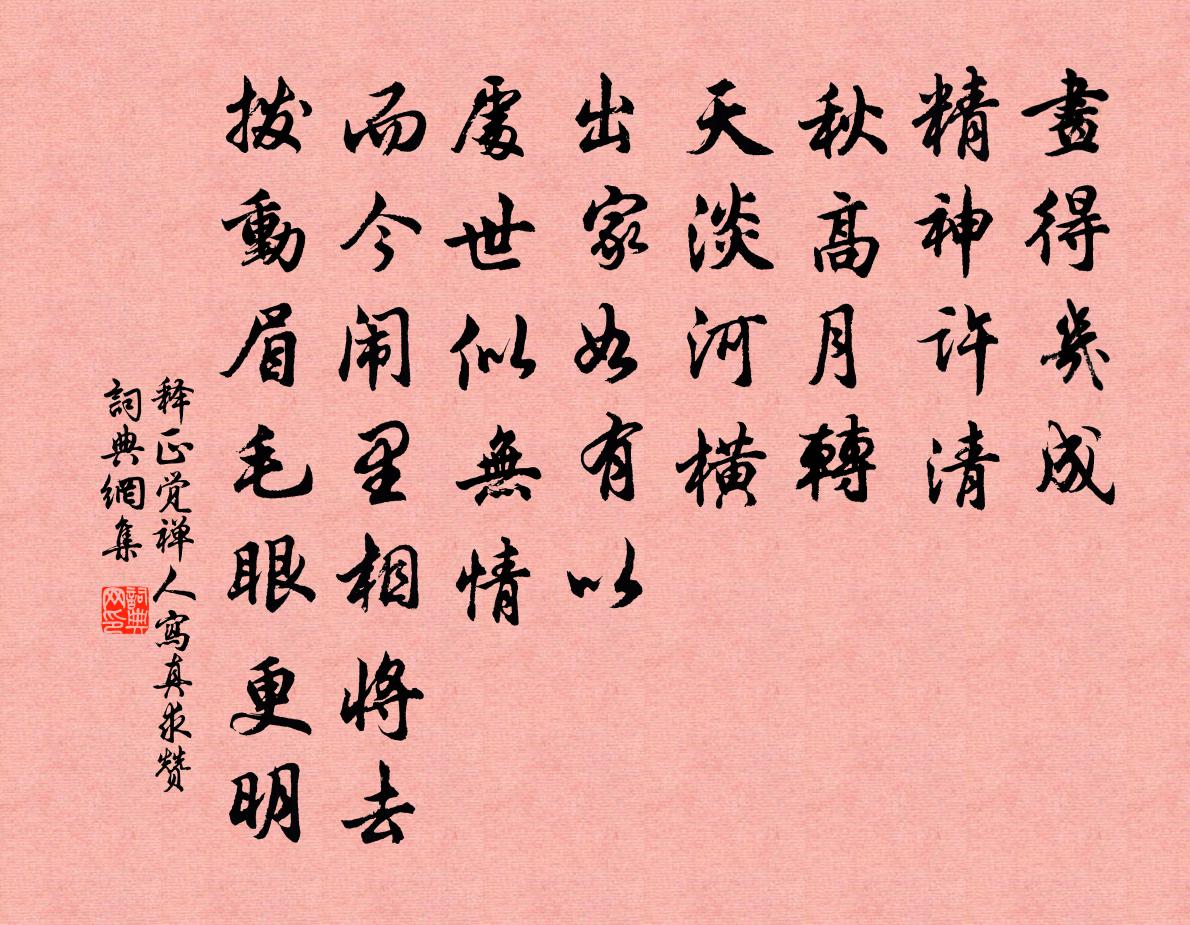 畫得幾成
精神許清
秋高月轉
天淡河橫
出家如有以
處世似無情
而今闹里相将去
拨動眉毛眼更明
释正觉禅人寫真求赞
詞典網集
詞典网印